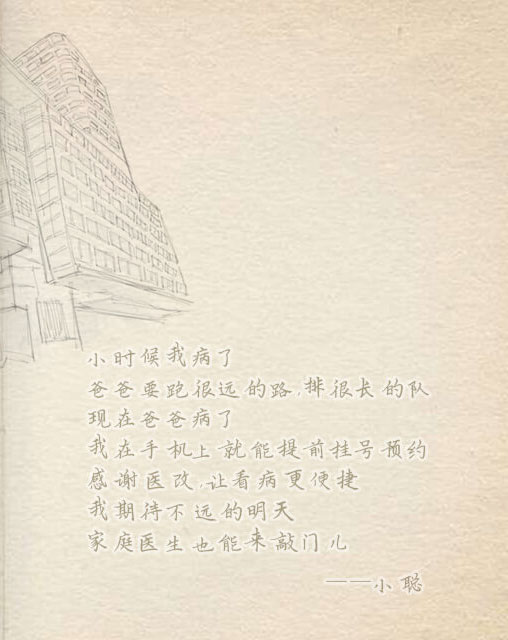 小时候我病了
爸爸要跑很远的路,排很长的队
现在爸爸病了
我在手机上就能提前挂号预约
感谢医改,让看病更便捷
我期待不远的明天
家庭医生也能来敲门儿
——小聪